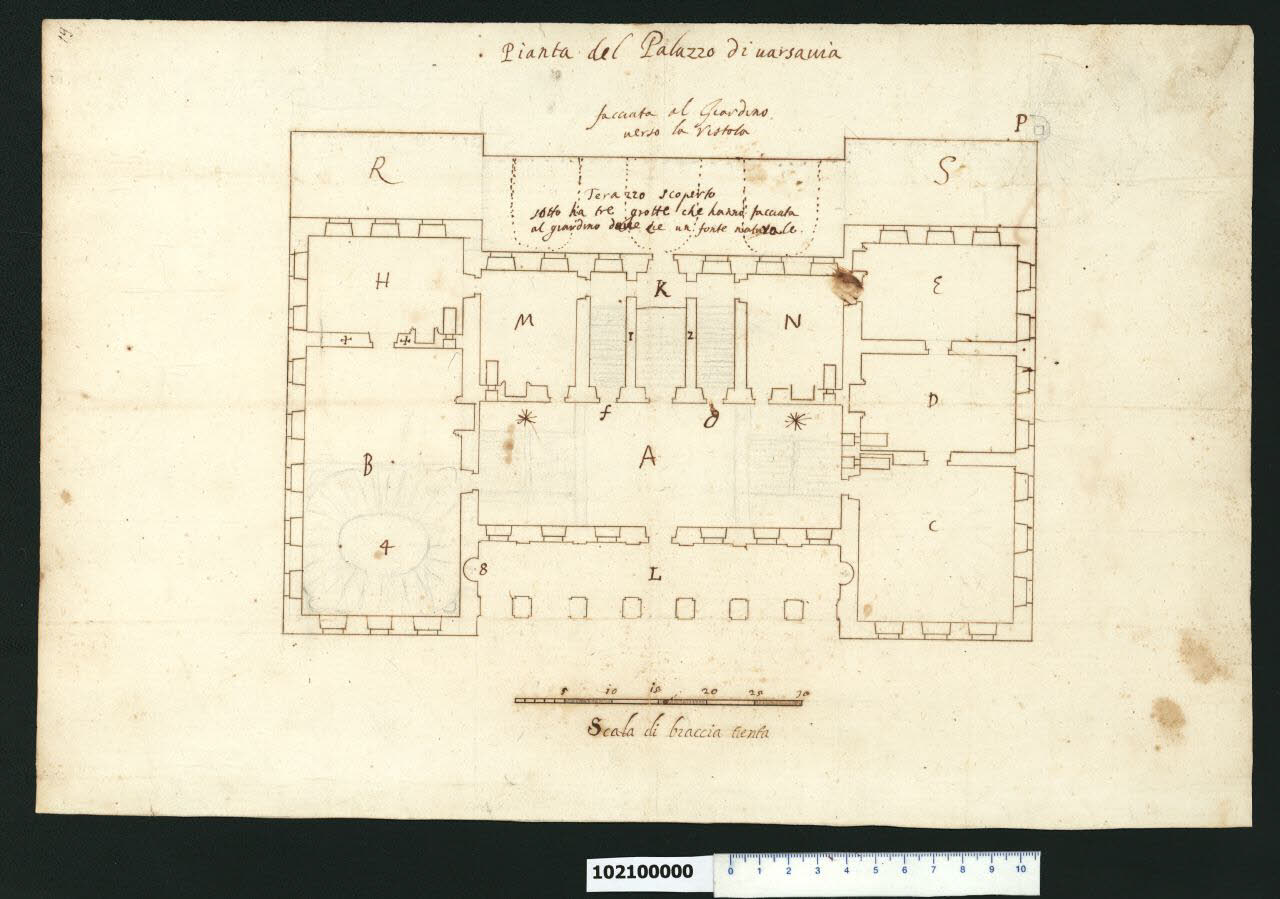 19
Pianta del Palazzo di uarsauia
facciata al Giardino
uerso la Vistola
P
R
S
Terazzo scoperto
sotto ha tre grotte che hanno facciata
al giardino un fonte naturale.
H
K
E
M
1
2
N
f
g
D
A
B
C
4
8
L
5 10 15 20 25 30
Scala di braccia trenta
102100000
0 1 2 3 4 5 6 7 8 9 10